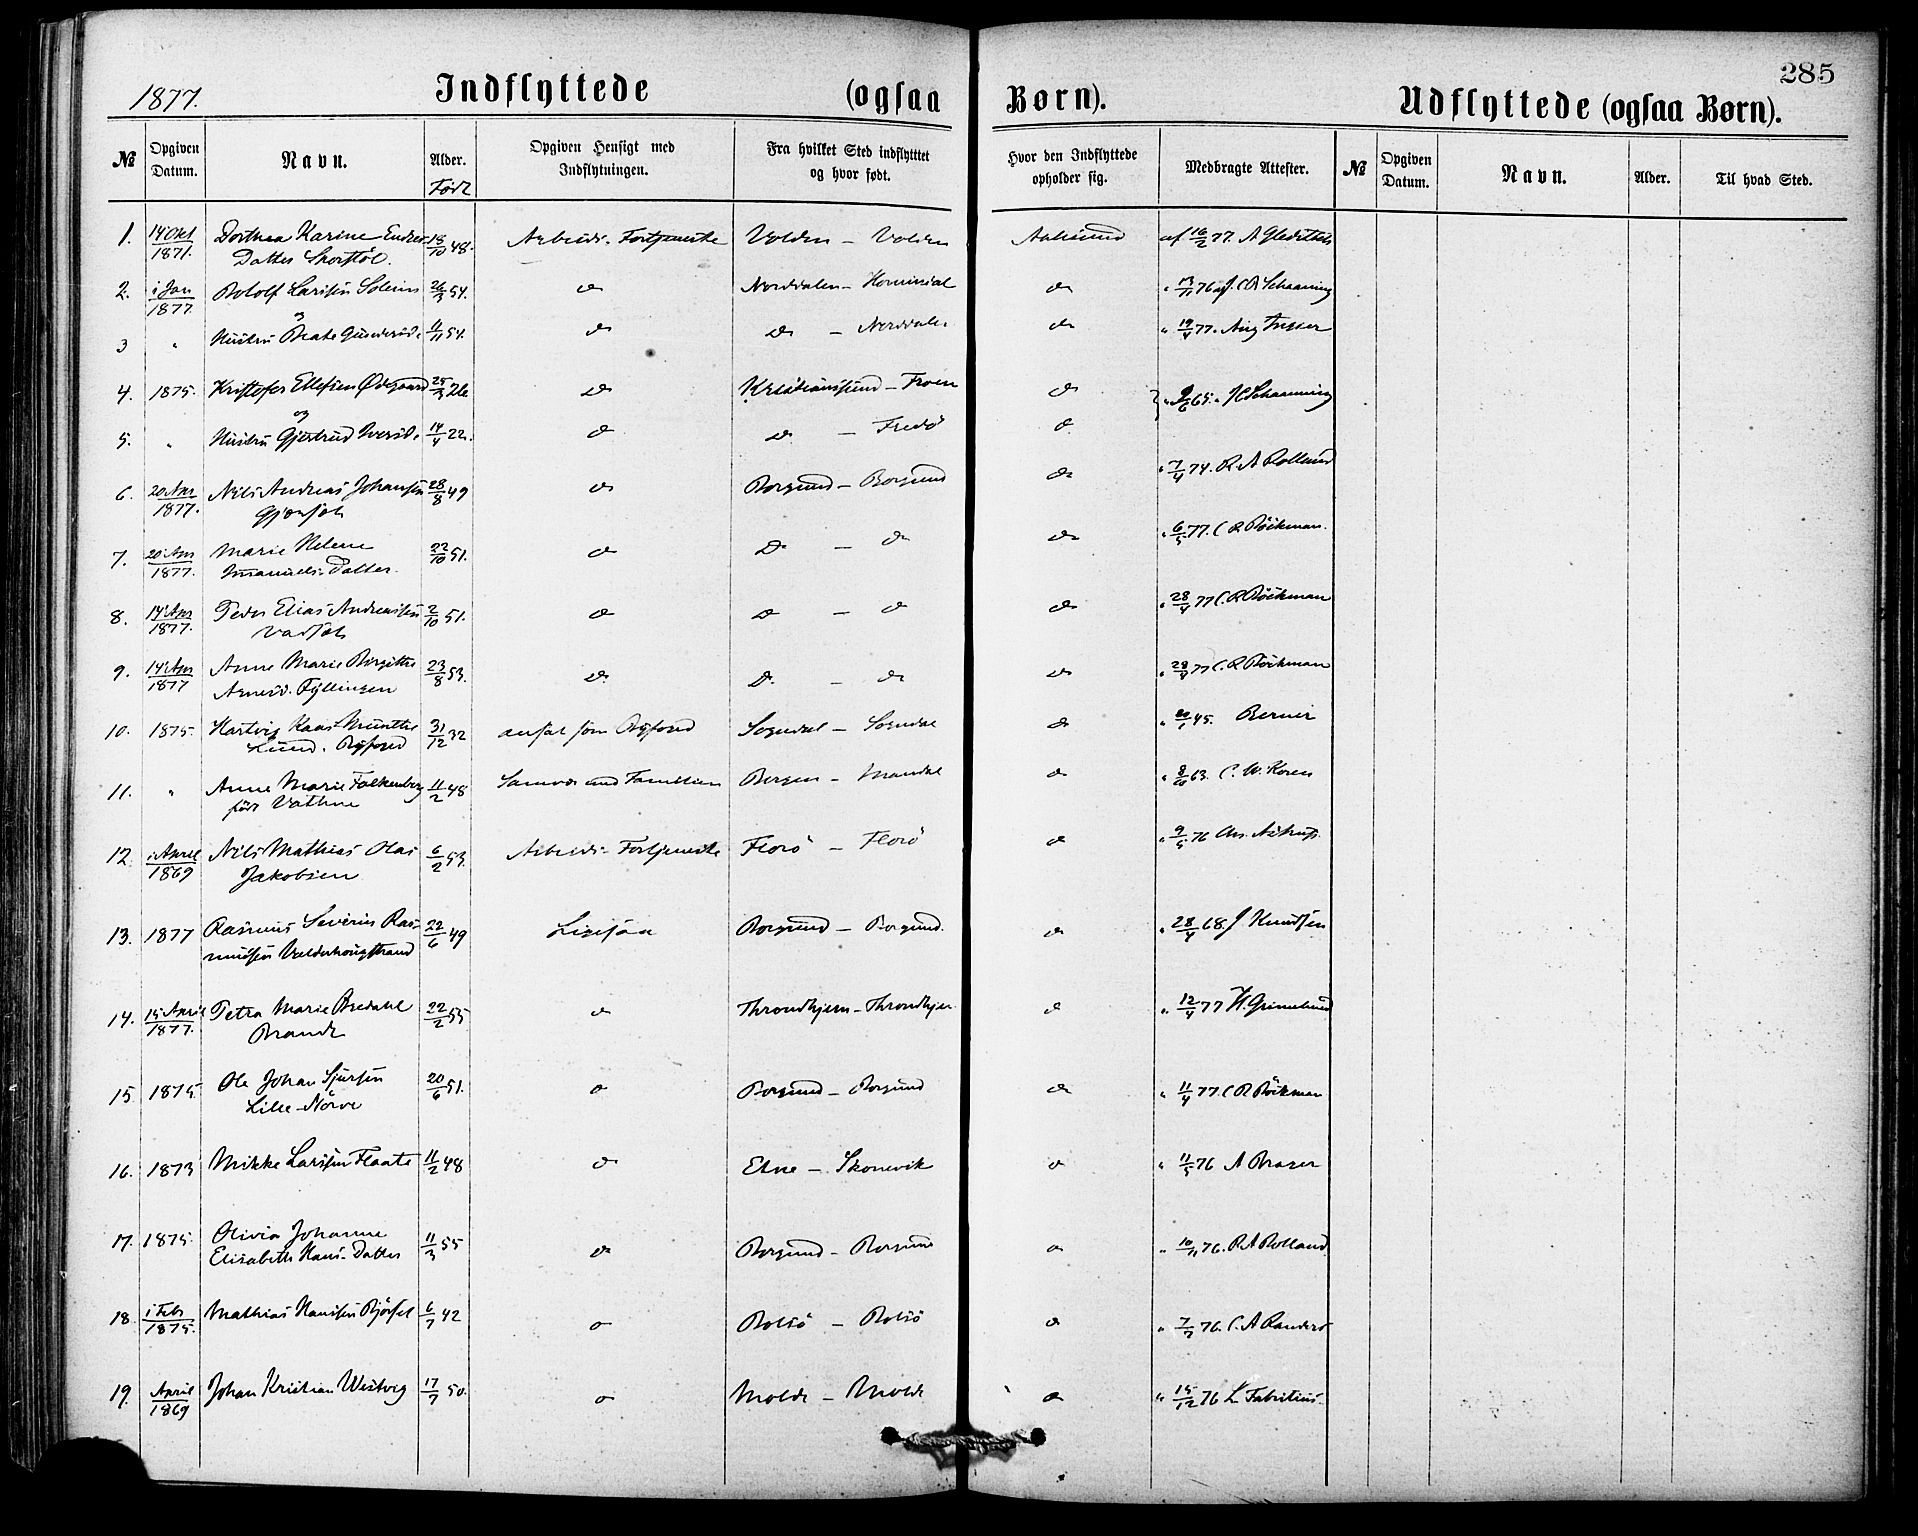 1877.
Indflyttede (ogsaa Børn).
Udflyttede (ogsaa Børn).
285
№ Opgiven Datum. Navn. Alder. Født Opgiven Hensigt med Indflytningen. Fra hvilket Sted indflytttet og hvor født. Hvor den Indflyttede opholder sig. Medbragte Attester. № Opgiven Datum. Navn. Alder. Til hvad Sted.
1. 14 Okt 1871. Dorthea Karine 18/10 48. Arbeids-Fortjeneste Volden – Volden Aalesund af 16/2 77.
Datter
2. i Jan 1877. Larssen 26/3 54. do Norddalen – do 76 Schaaning
og
3 " Hustru Beate 11/11 54. do do – Norddalen do " 19/4 77.
4. 1875. Kristofer Ellefsen Ødegaard 25/3 26 do Kristianssund – do " 65. Schaanning
og
5. " Hustru Gjertrud Iversd. 14/4 22. do do – Fredø do
6. 20 Apr 1877. Nils Andreas Johansen 28/8 49 do Borgund – Borgund do " 7/4 74. R A Rolland
7. 20 Apr 1877. Marie Helene 22/10 51. do do – do do " 6/5 77. C R Böckman.
Immanuels-Datter.
8. 14 Apr 1877. Peder Elias Andreassen 2/10 51. do do – do do " 28/4 77 C. R Böckman
9. 14 Apr 1877 Anne Marie Birgitte 23/8 53. do do – do do " 28/4 77 C. R Böckman
Fyllingen
10. 1875. Hartvig Kaas Munthe 31/12 32 ansat som Byfoged Sogndal – Sogndal do " 45.
Lund. Byfoged
11. " Anne Marie Falkenberg 11/2 48 Samvær med Familien Bergen – Mandal do " 63. C. W. Koren
født Vathne
12. i April 1869 Nils Mathias Olai 6/2 53. Arbeids-Fortjeneste Florö – Florö do " 9/5 76 Chr. Astrup.
Jakobsen
13. 1877 Rasmus Severin Ras- 22/6 49 Ligesaa Borgund – Borgund. do " 28/4 68. J Knudsen
mussen Valderhougstrand
14. 15 April 1877. Petra Marie Bredahl 22/2 55 do Throndhjem – Throndhjem do " 12/4 77 H. Grimelund
Brandt
15. 1875. Ole Johan Sjursen 20/6 51. do Borgund – Borgund do " 11/4 77. C R Böckman
Lille-Nörve
16. 1873 Mikke Larssen Flaate 11/2 48 do Etne – Skonevik do " 11/5 76
17. 1875. Olivia Johanne 11/3 55 do Borgund – Borgund do " 10/11 76. R A Rolland
Elisabeth Hans-Datter
18. i Febr 1875. Mathias Hanssen 6/7 42 do Bolsö – Bolsö do " 76. C. A Randers
19. April 1869 Johan Kristian Westvig 17/7 50. do Molde – Molde do " 15/12 76 L Fabritius.